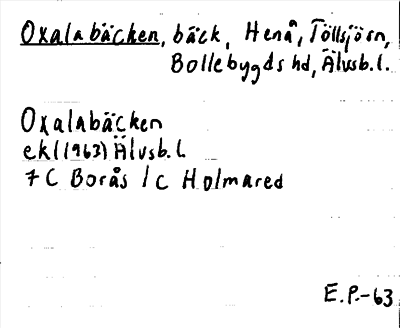 Oxalabäcken, bäck, Henå, Töllsjösn,
Bollebygds hd, Älvsb.l.
Oxalabäcken
ekl(1963) Älvsb.l.
7C Borås 1c Holmared
E.P.-63